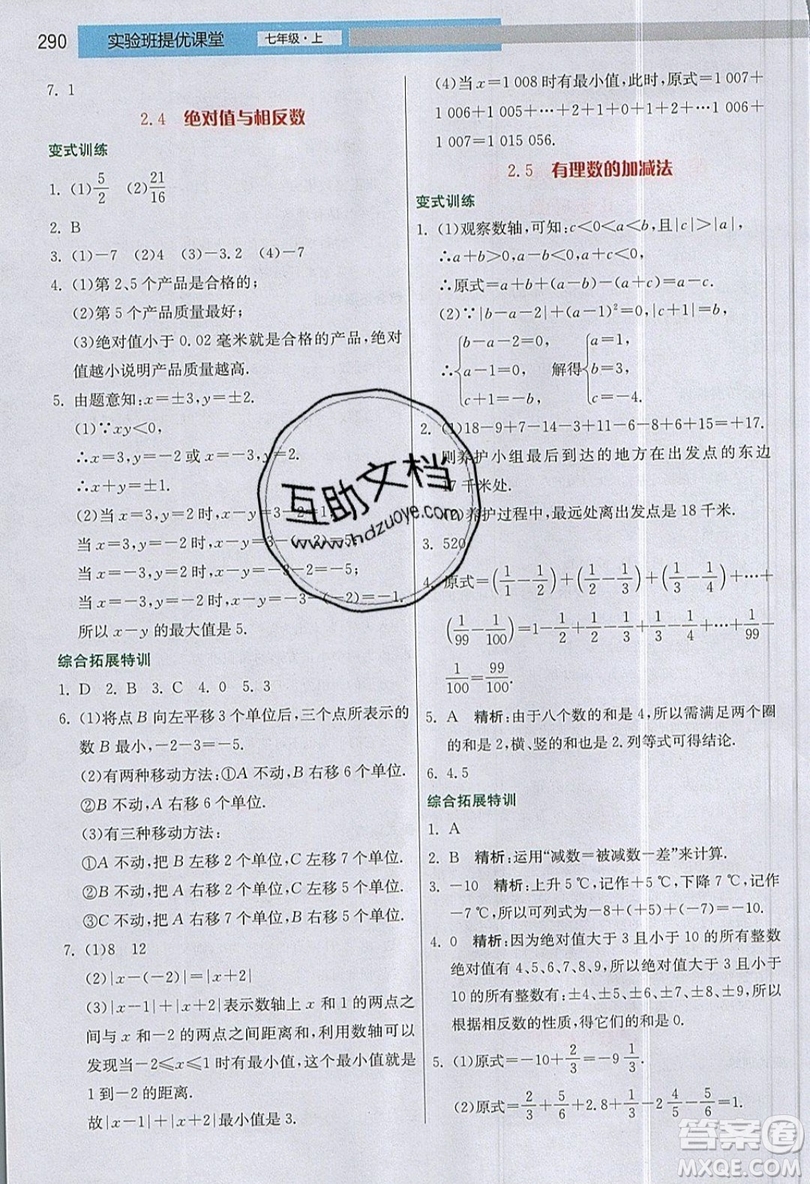 290 实验班提优课堂 七年级·上
7. 1
2.4 绝对值与相反数
变式训练
1. (1)5/2 (2)21/16
2. B
3. (1)-7 (2)4 (3)-3.2 (4)-7
4. (1)第2、5个产品是合格的;
(2)第5个产品质量最好;
(3)绝对值小于0.02毫米就是合格的产品,绝对
值越小说明产品质量越高.
5. 由题意知:x=±3,y=±2.
(1)∵xy<0,
∴x=3,y=-2或x=-3,y=2.
∴x+y=±1.
(2)当x=3,y=2时,x-y=3-2=1;
当x=3,y=-2时,x-y=3-(-2)=5;
当x=-3,y=2时,x-y=-3-2=-5;
当x=-3,y=-2时,x-y=-3-(-2)=-1.
所以x-y的最大值是5.
综合拓展特训
1. D 2. B 3. C 4. 0 5. 3
6. (1)将点B向左平移3个单位后,三个点所表示的
数B最小,-2-3=-5.
(2)有两种移动方法:①A不动,B右移6个单位.
②B不动,A右移6个单位.
(3)有三种移动方法:
①A不动,把B左移2个单位,C左移7个单位.
②B不动,把A右移2个单位,C左移5个单位.
③C不动,把A右移7个单位,B右移5个单位.
7. (1)8 12
(2)|x-(-2)|=|x+2|
(3)|x-1|+|x+2|表示数轴上x和1的两点之
间与x和-2的两点之间距离和,利用数轴可以
发现当-2≤x≤1时有最小值,这个最小值就是
1到-2的距离.
故|x-1|+|x+2|最小值是3.
(4)当x=1 008时有最小值,此时,原式=1 007+
1 006+1 005+…+2+1+0+1+2+…+1 006+
1 007=1 015 056.
2.5 有理数的加减法
变式训练
1. (1)观察数轴,可知:c<0<a<b,且|c|>|a|,
∴a+b>0,a+c<0,b-c>0.
∴原式=a+b+(-a-c)-(b-c)=a-c.
(2)∵|b-a-2|+(a-1)²=0,|c+1|=b,
∴{b-a-2=0, a-1=0, |c+1|=b, 解得{a=1, b=3, c=-4.
2. (1)18-9+7-14-3+11-6-8+6+15=+17.
则养护小组最后到达的地方在出发点的东边
17千米处.
养护过程中,最远处离出发点是18千米.
3. 520
4. 原式=(1/1-1/2)+(1/2-1/3)+(1/3-1/4)+…+
(1/99-1/100)=1-1/2+1/2-1/3+1/3-1/4+…+1/99
-1/100=99/100.
5. A 精析:由于八个数的和是4,所以需满足两个圈
的和是2,横、竖的和也是2.列等式可得结论.
6. 4.5
综合拓展特训
1. A
2. B 精析:运用“减数=被减数-差”来计算.
3. -10 精析:上升5℃,记作+5℃,下降7℃,记
作-7℃,所以可列式为-8+(+5)+(-7)=-10.
4. 0 精析:因为绝对值大于3且小于10的所有整数
绝对值有4、5、6、7、8、9,所以绝对值大于3且小于
10的所有整数有:±4、±5、±6、±7、±8、±9,所以
根据相反数的性质,得它们的和是0.
5. (1)原式=-10+2/3=-9 1/3.
(2)原式=2/3+1/3+2.8-2 4/5-5 2/3=-4 2/3.
互助文档
www.hdzuoye.com
答案圈
MXQE.COM